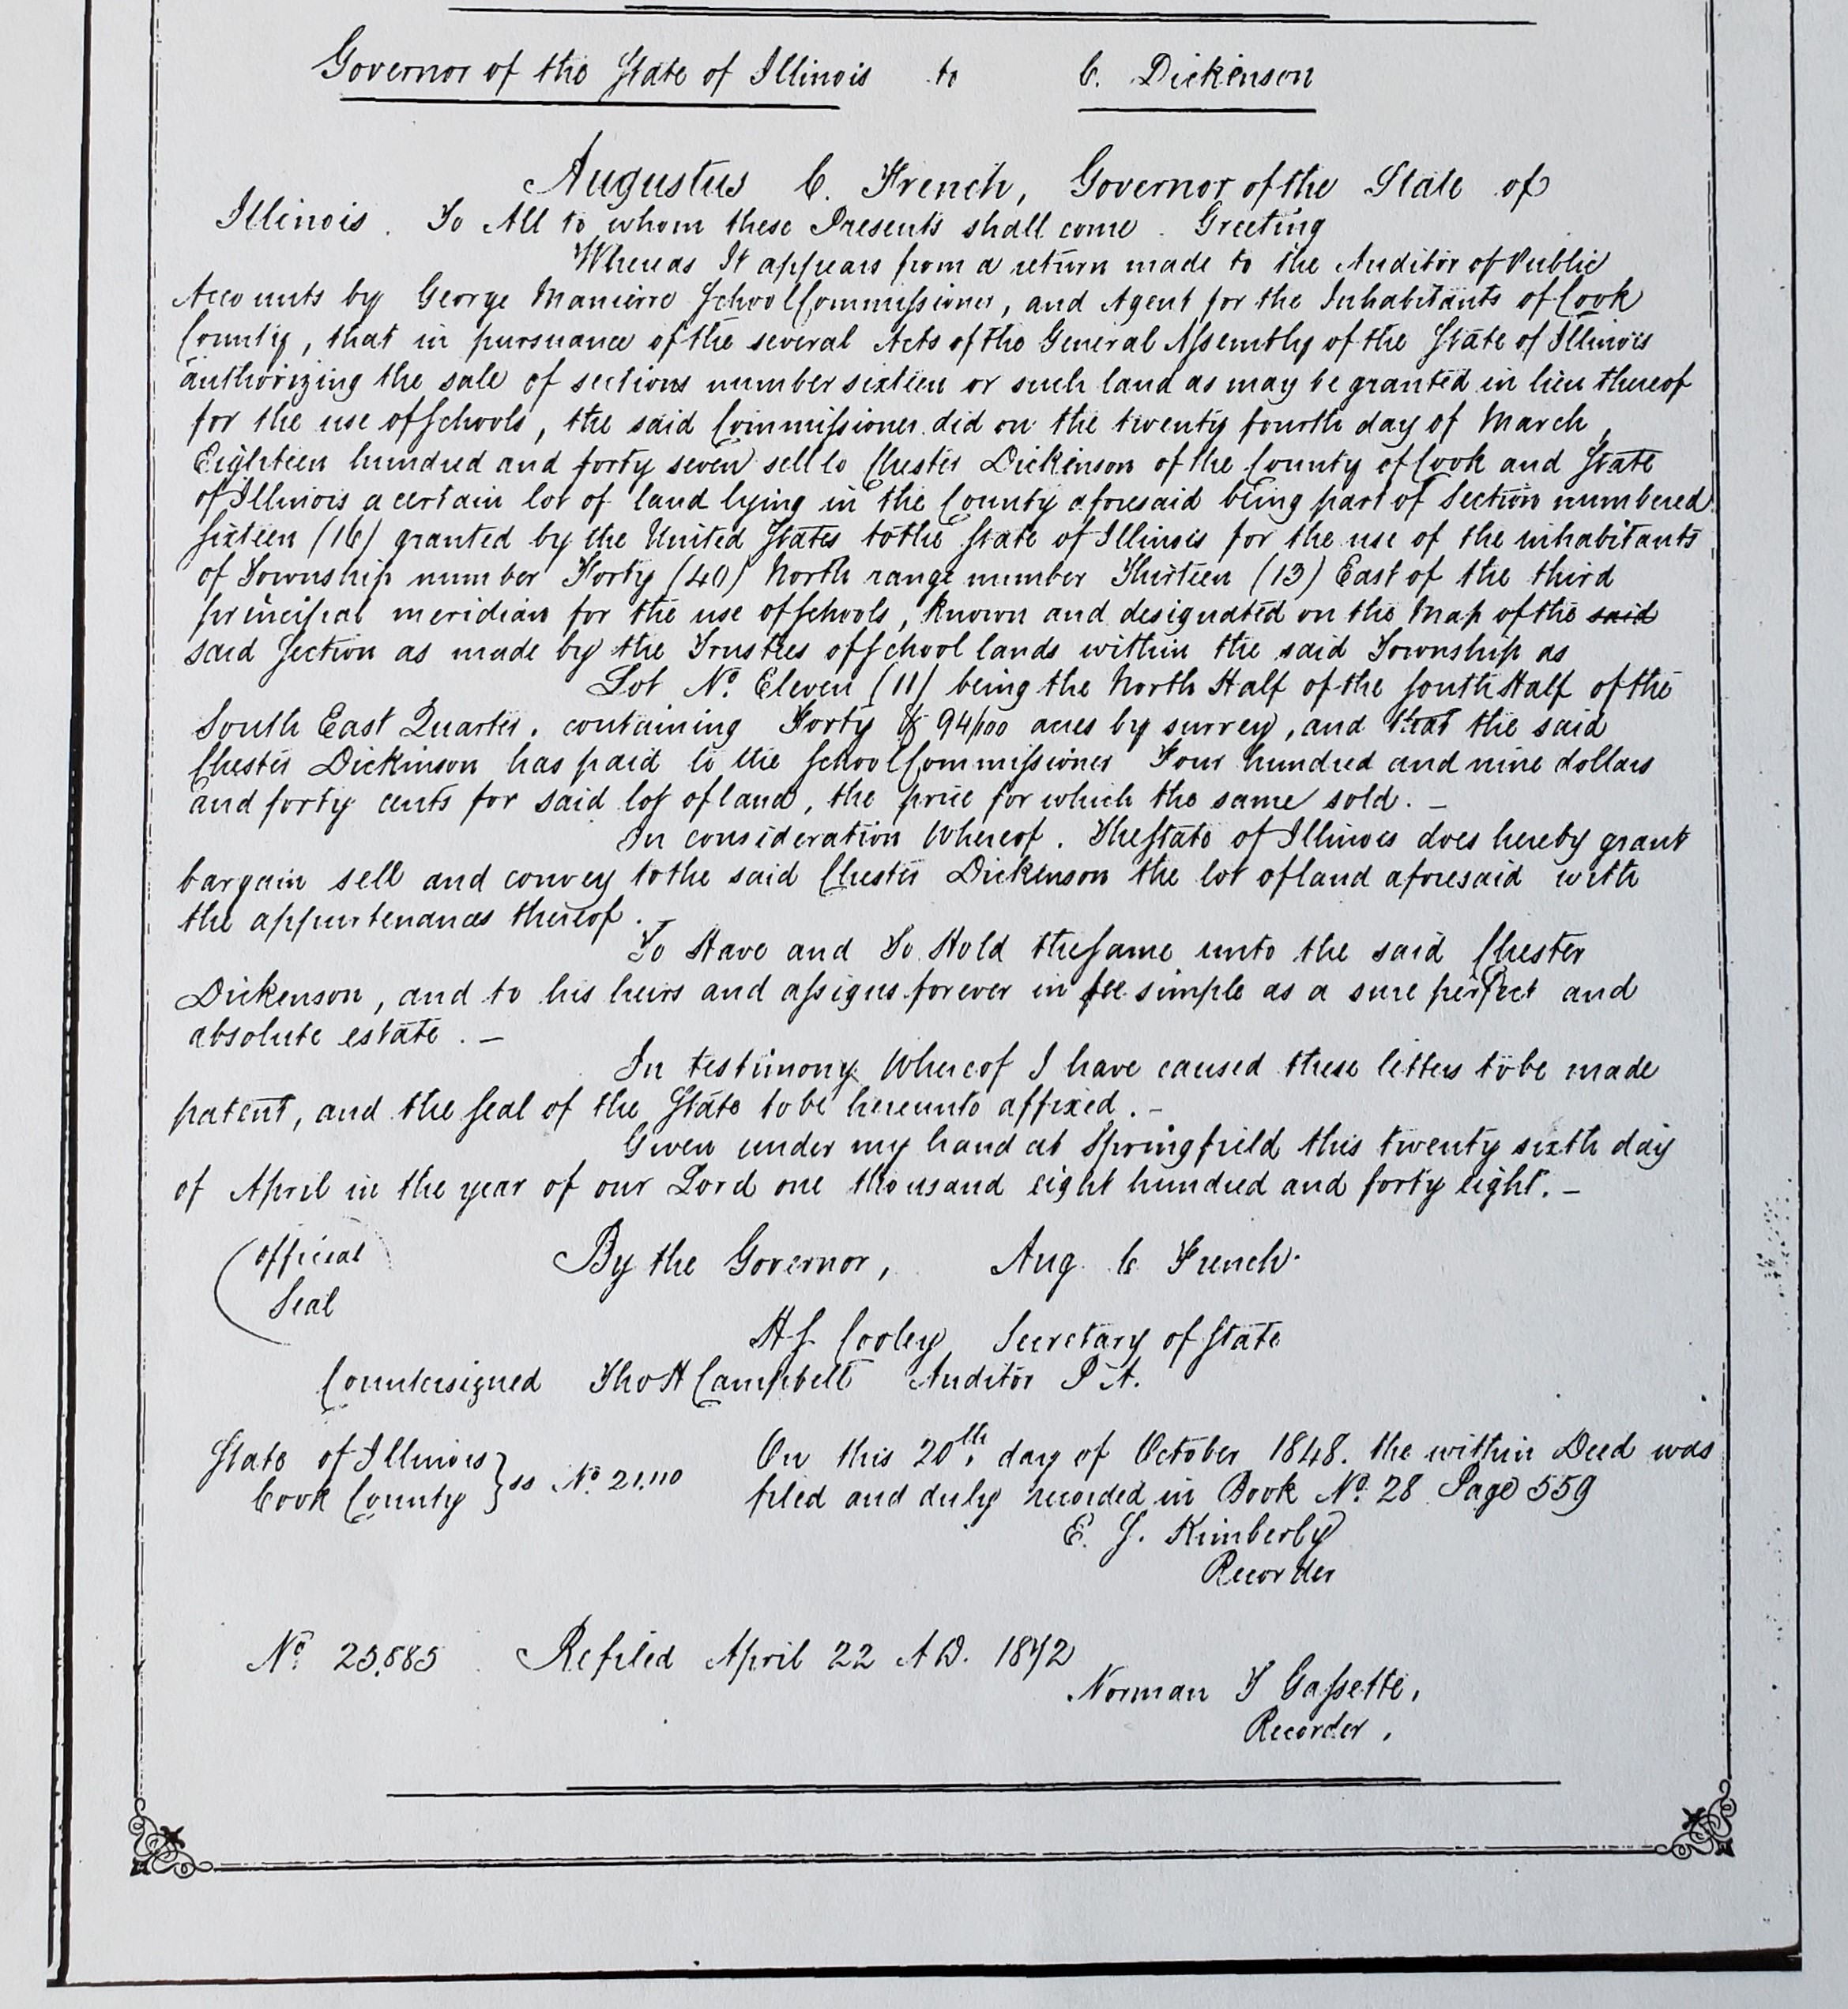 Governor of the State of Illinois to C. Dickinson
Augustus C. French, Governor of the State of
Illinois. To All to whom these Presents shall come. Greeting
Whereas It appears from a return made to the Auditor of Public
Accounts by George Manierre School Commissioner, and Agent for the Inhabitants of Cook
County, that in pursuance of the several Acts of the General Assembly of the State of Illinois
authorizing the sale of sections number sixteen or such land as may be granted in lieu thereof
for the use of schools, the said Commissioner did on the twenty fourth day of March,
Eighteen hundred and forty seven sell to Chester Dickinson of the County of Cook and State
of Illinois a certain lot of land lying in the County aforesaid being part of Section numbered
Sixteen (16) granted by the United States to the State of Illinois for the use of the inhabitants
of Township number Forty (40) North range number Thirteen (13) East of the third
principal meridian for the use of schools, known and designated on the Map of the said
said Section as made by the Trustees of School lands within the said Township as
Lot No. Eleven (11) being the North Half of the South Half of the
South East Quarter. containing Forty & 94/100 acres by survey, and that the said
Chester Dickinson has paid to the School Commissioner Four hundred and nine dollars
and forty cents for said lot of land, the price for which the same sold. –
In consideration Whereof. The State of Illinois does hereby grant
bargain sell and convey to the said Chester Dickenson the lot of land aforesaid with
the appurtenances thereof.
To Have and To Hold the Same unto the said Chester
Dickenson, and to his heirs and assigns forever in fee simple as a sure perfect and
absolute estate. –
In testimony Whereof I have caused these letters to be made
patent, and the Seal of the State to be hereunto affixed. –
Given under my hand at Springfield this twenty sixth day
of April in the year of our Lord one thousand eight hundred and forty eight. –
(Official By the Governor, Aug. C French.
Seal
H S Cooley Secretary of State
Countersigned Tho H Campbell Auditor P A.
State of Illinois } ss No. 21.110 On this 20th. day of October 1848. the within Deed was
Cook County filed and duly recorded in Book No. 28 Page 559
E. S. Kimberly
Recorder
No 25,885 Refiled April 22 A D. 1872
Norman T Gassette,
Recorder,